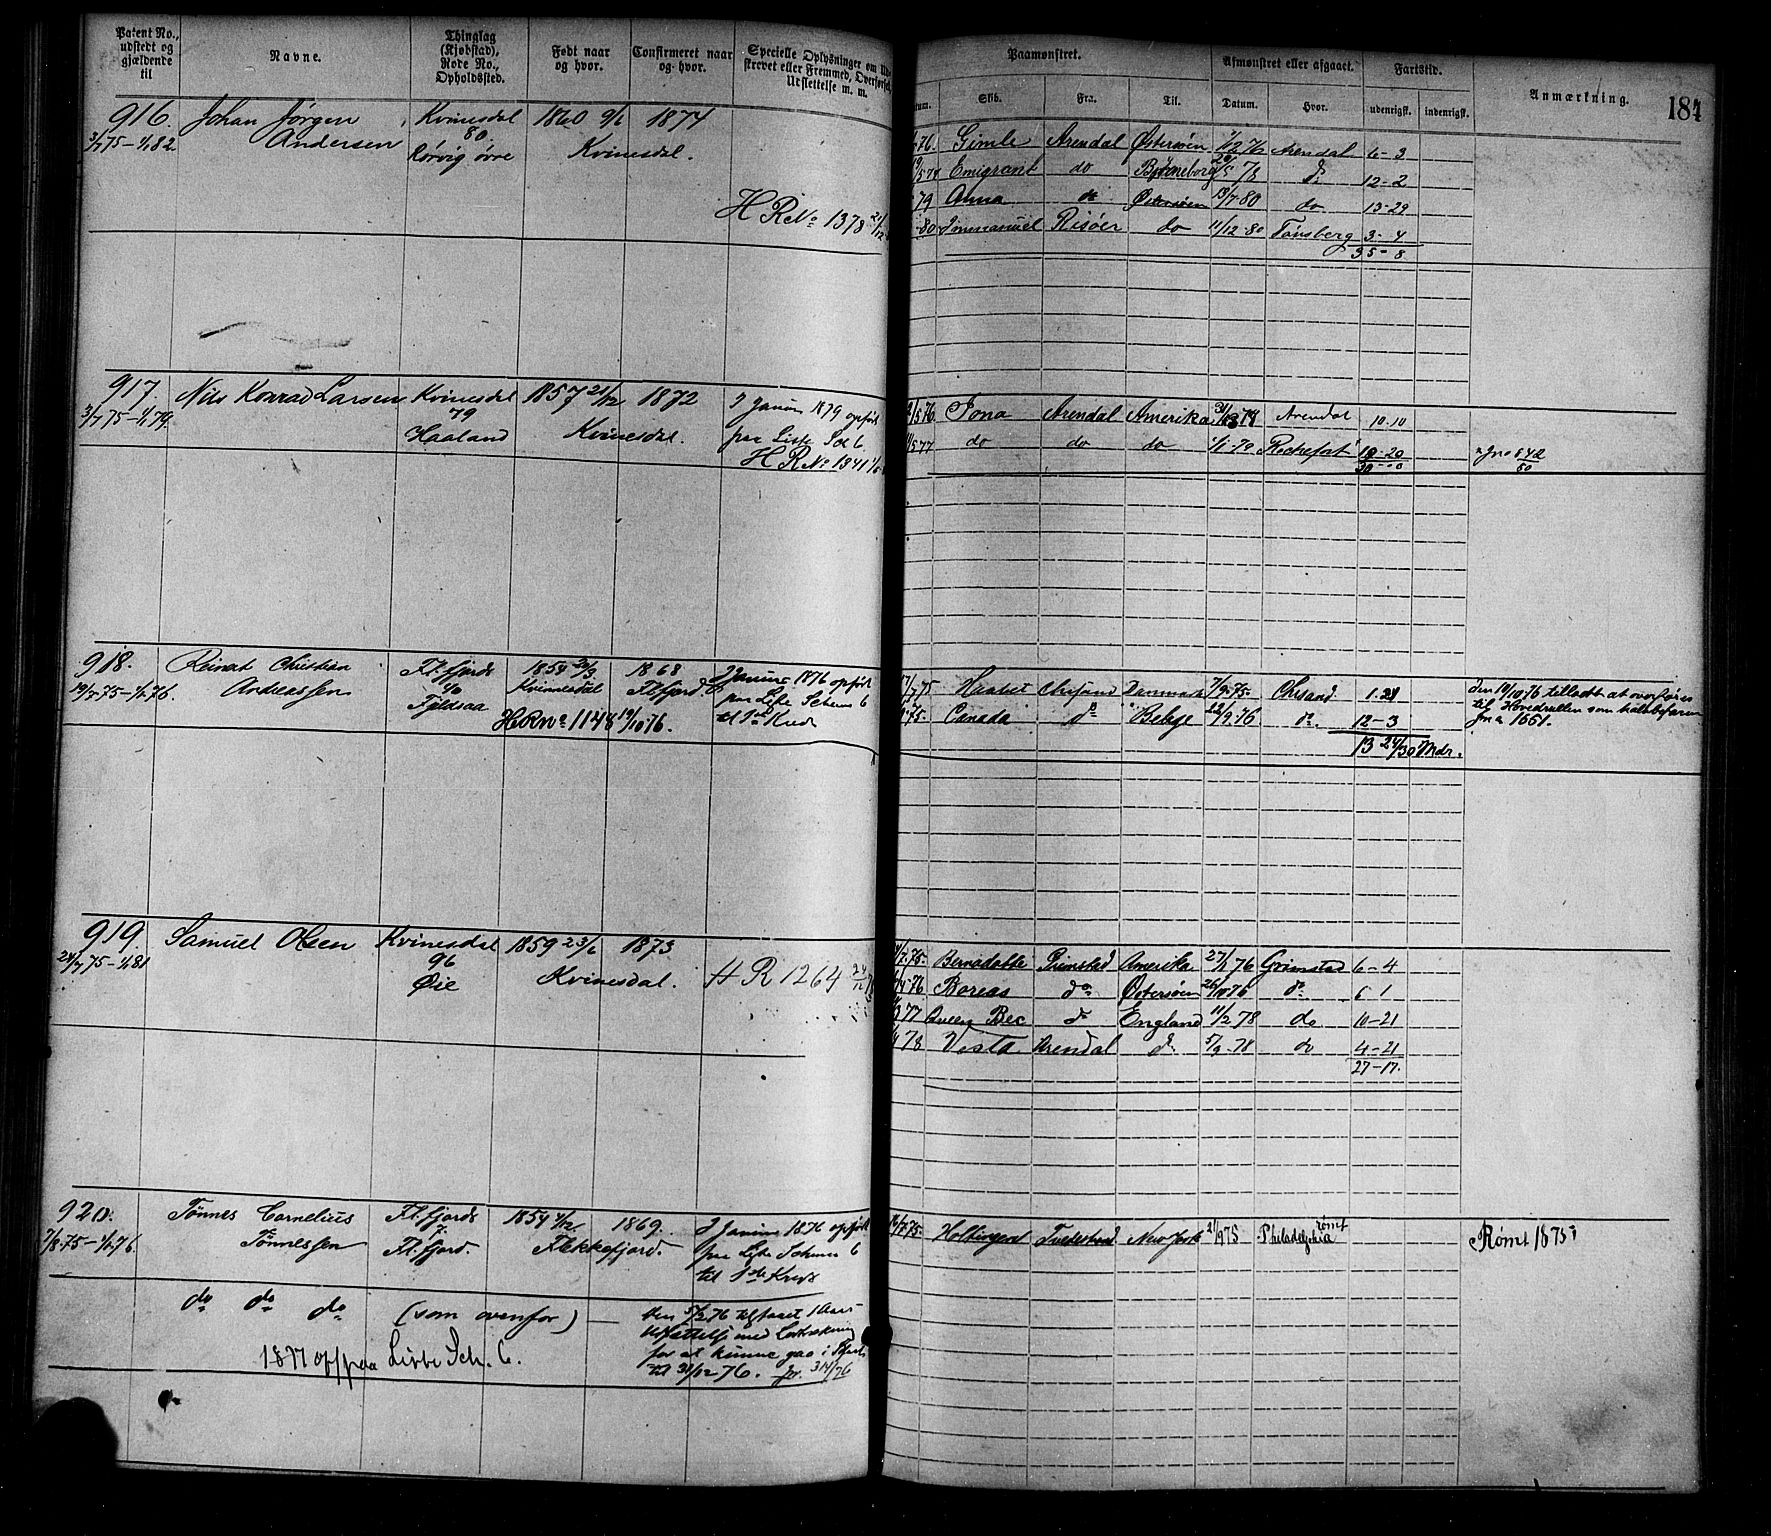 Patent No.,
udstedt og
gjældende
til
Navne.
Thinglag
(Kjøbstad),
Rode No.,
Opholdssted.
Født naar
og hvor.
Confirmeret naar
og hvor.
Specielle Oplysninger om Ud-
skrevet eller Fremmed, Overførsel,
Udslettelse m. m.
916.
3/7 75 – 1/1 82
Johan Jørgen
Andersen
Kvinesdal
80
Rørvig øvre
1860 9/6 1874
Kvinesdal.
H R No 1378 21/12
917.
3/7 75 – 1/1 79.
Nils Konrad Larsen
Kvinesdal
79
Haaland
1857 21/12 1872
Kvinesdal.
I Januar 1879 opført
paa Liste Sch 6
H R No 1341
918.
19/7 75 – 1/1 76.
Reinert Christian
Andreassen
Fl. fjords
40
1854 20/3
Kvinnesdal
1868
Fl.fjord
I Januar 1876 opført
paa Liste Schema 6
til 1ste Kreds
H R No 1148 19/10 76.
919.
24/7 75 – 1/1 81
Samuel Olsen
Kvinesdal
96
Øie
1859 23/6 1873
Kvinesdal.
H R 1264 24/12
920.
7/8 75 – 1/1 76.
Tønnes Cornelius
Tønnessen
Fl. fjords
7.
Fl. fjord.
1854 4/12 1869.
Flekkefjord.
I Januar 1876 opført
paa Liste Schema 6
til 1de Kreds
do do do (som ovenfor) —
den 5/2 76 tilstaaet 1 Aars
Udsættelse med
for at kunne gaa i
til 31/12 76. Jr. 314/76
1877 op paa Liste Sch. 6.
Paamønstret.
Afmønstret eller afgaaet.
Fartstid.
Anmærkning.
184
Skib.
Fra.
Til.
Datum.
Hvor.
udenrigsk.
indenrigsk.
76. Gimle Arendal Østersøen 1/12 76 Arendal 6 – 3
Emigrant do Bjørneborg 78 do 12 – 2
79 Anna do Østersøen 13/7 80 do 13 – 29
80 Immanuel Risøer do 11/12 80 Tønsberg 3 – 4
35 – 8
76 Jona Arendal Amerika Arendal 10.10
77 do do do Rochefort 19 – 20
30 – 0
75 Chrsand Danmark 7/9 75. Chrsand 1.21
75. Canada do Belge 22/9 76 do 12 – 3
13 24/30 Mdr.
Den 19/10 76 tilladt at overføres
til Hovedrullen som halvbefaren
Jno 1661.
7/75. Bernadotte Grimstad Amerika 27/1 76 Grimstad 6 – 4
76 Boreas do Østersøen 26/10 76 do 6 1
77 Queen Bee do England 11/2 78 do 10 – 21
78 Vesta Arendal do 5/9 78 do 4 – 21
27 – 17.
7/75. Hollingen Tvedestrand New York 21/9 75 Philadelphia rømt
Rømt 1875